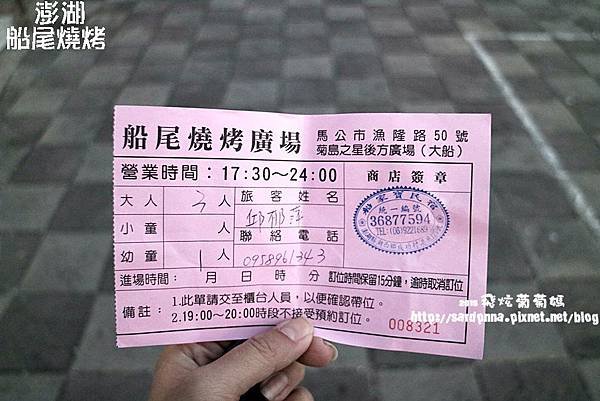 澎湖
船尾燒烤
船尾燒烤廣場
馬公市漁隆路50號
菊島之星後方廣場（大船）
營業時間：17:30～24:00
商店簽章
大人 3人
旅客姓名
小童 人
邱郁萍
聯絡電話
幼童 1人
0958961343
船家寶民宿
統一編號
36877594
進場時間： 月 日 時 分 訂位時間保留15分鐘，逾時取消訂位
備註：
1.此單請交至櫃台人員，以便確認帶位。
2.19:00～20:00時段不接受預約訂位。
008321
2015 飛炫葡萄媽
http://sardpnna.pixnet.net/blog